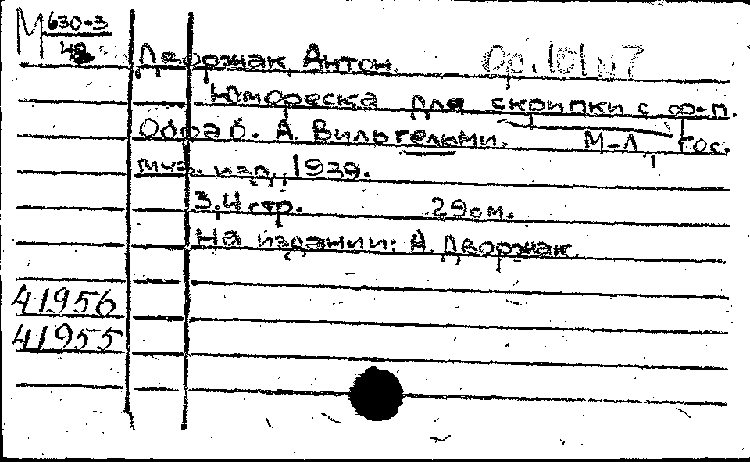 М 630-3
Дворжак, Антон. Op. 101 N 7
Юмореска для скрипки с ф-п.
Обраб. А. Вильгельми. М-Л, Гос.
муз. изд., 1939.
3,4 стр. 29 см.
На издании: А. Дворжак.
41956
41955